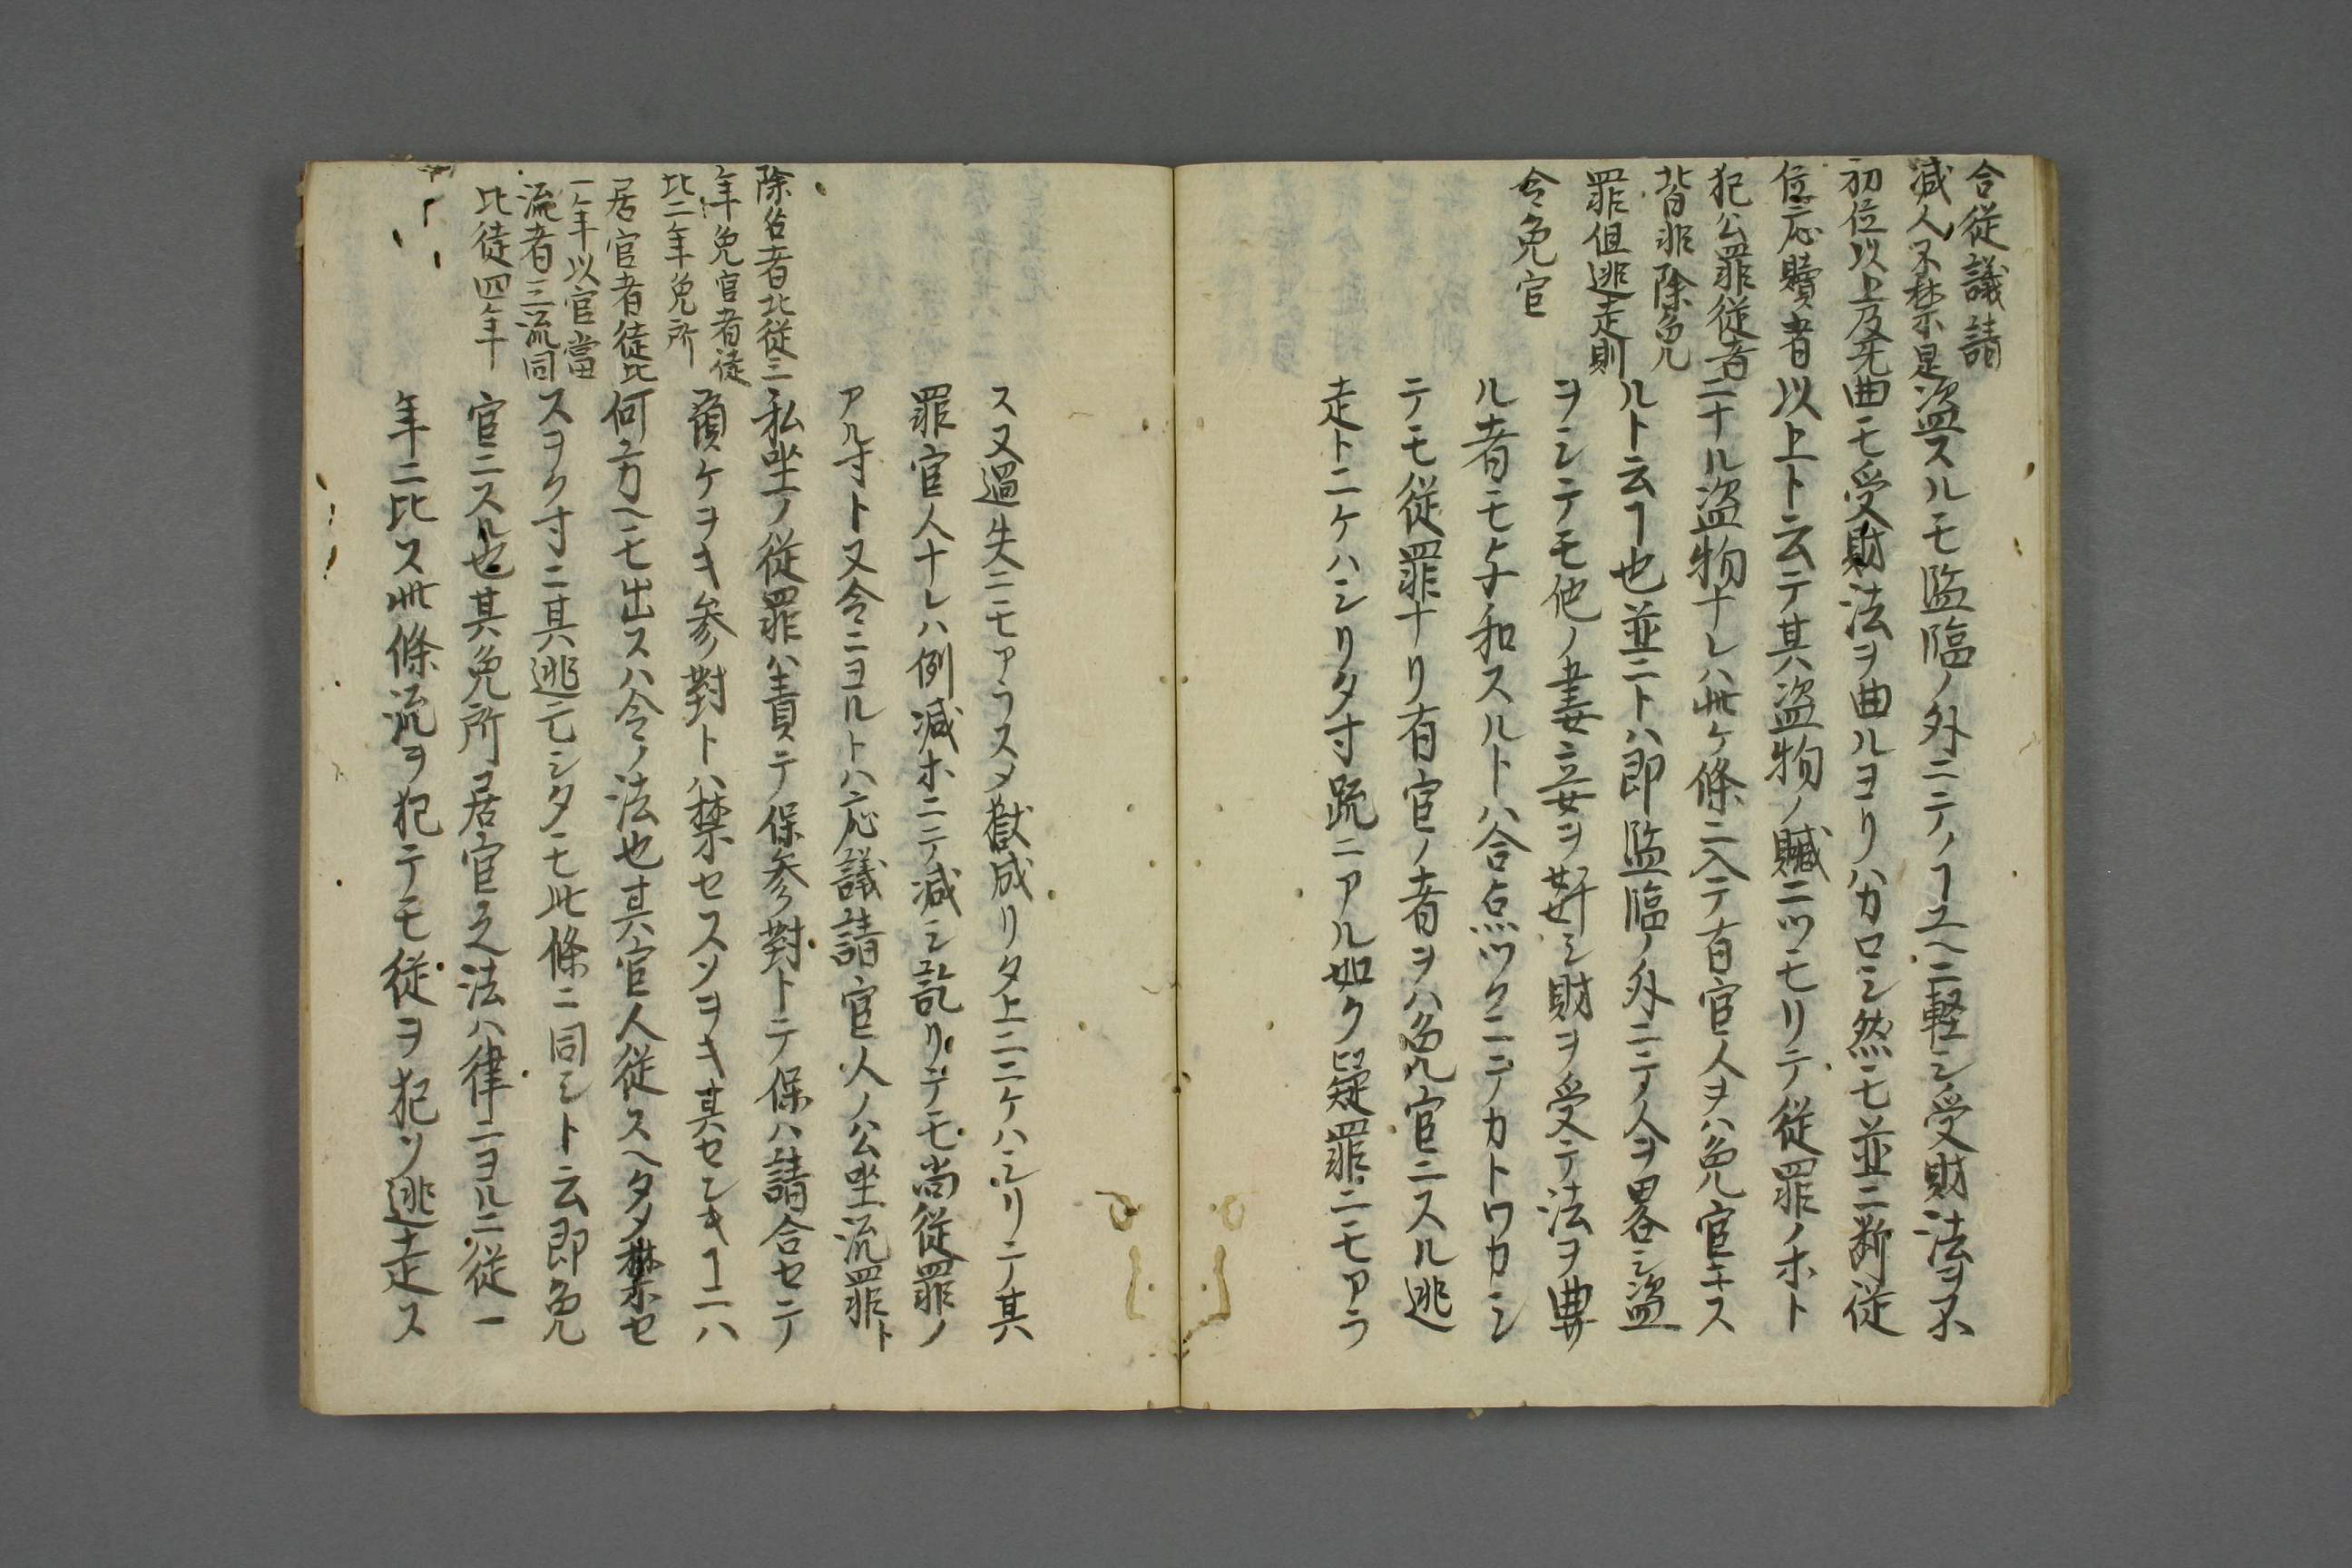 合従議請
減人不禁是
初位以上及无
位応贖者
犯公罪従者
皆非除免
罪但逃走則
令免官
盗スルモ監臨ノ外ニテノヿユヘニ軽シ受財法ヲ不
曲モ受財法ヲ曲ルヨリハカロシ然モ並ニ断従
以上ト云テ其盗物ノ贓ニツモリテ従罪ノホト
ニナル盗物ナレハ此ケ條ニ入テ有官人ヲハ免官ニス
ルト云ヿ也並ニトハ即監臨ノ外ニテ人ヲ畧シ盗
ヲシテモ他ノ妻妾ヲ奸シ財ヲ受テ法ヲ曲
ル者モ和スルトハ合点ツクニテカトワカシ
テモ従罪ナリ有官ノ者ヲハ免官ニスル逃
走トニケハシリタ寸䟽ニアル如ク疑罪ニモアラ
ス又過失ニモアラスメ獄成リタ上ニニケハシリテ其
罪官人ナレハ例減ホニテ減シ訖リテモ尚従罪ノ
アル寸ト又令ニヨルトハ応議請官人ノ公坐流罪ト
私坐ノ従罪ハ責テ保参對トテ保ハ請合セテ
預ケヲキ参對トハ禁セスソヲキ其セシキヿニハ
何方ヘモ出スハ令ノ法也其官人従スヘタメ禁セ
スヲク寸ニ其逃亡シタモ此條ニ同シト云即免
官ニスル也其免所居官之法ハ律ニヨルニ従一
年ニ比ス此條流ヲ犯テモ従ヲ犯ソ逃走ス
除名者比従三
年免官者徒
比二年免所
居官者徒比
一年以官當
流者三流同
比徒四年